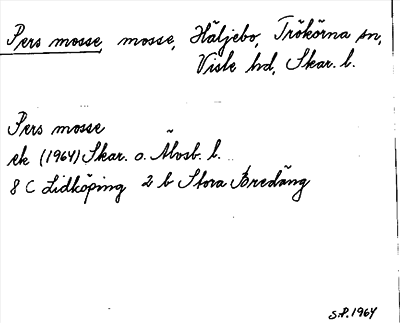 Pers mosse mosse, Häljebo, Trökörna sn,
Viste hd, Skar. l.
Pers mosse
ek (1964) Skar. o. Älvsb. l.
8 C Lidköping 2 b Stora Bredäng
S.P. 1964